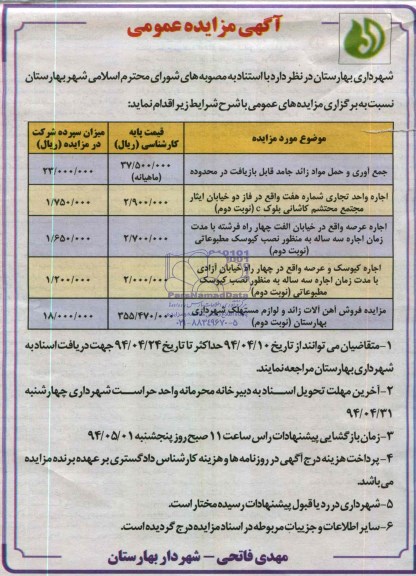 آگهی مزایده عمومی
شهرداری بهارستان در نظر دارد با استناد به مصوبه های شورای محترم اسلامی شهر بهارستان
نسبت به برگزاری مزایده های عمومی با شرح شرایط زیر اقدام نماید:
موضوع مورد مزایده
قیمت پایه کارشناسی (ریال)
میزان سپرده شرکت در مزایده (ریال)
جمع آوری و حمل مواد زائد جامد قابل بازیافت در محدوده
۳۷/۵۰۰/۰۰۰ (ماهیانه)
۲۳/۰۰۰/۰۰۰
اجاره واحد تجاری شماره هفت واقع در فاز دو خیابان ایثار
مجتمع محتشم کاشانی بلوک c (نوبت دوم)
۲/۹۰۰/۰۰۰
۱/۷۵۰/۰۰۰
اجاره عرصه واقع در خیابان الفت چهار راه فرشته با مدت
زمان اجاره سه ساله به منظور نصب کیوسک مطبوعاتی
(نوبت دوم)
۲/۷۰۰/۰۰۰
۱/۶۵۰/۰۰۰
اجاره کیوسک و عرصه واقع در چهار راه خیابان آزادی
با مدت زمان اجاره سه ساله به منظور نصب کیوسک
مطبوعاتی (نوبت دوم)
۲/۰۰۰/۰۰۰
۱/۲۰۰/۰۰۰
مزایده فروش آهن آلات زائد و لوازم مستهلک شهرداری
بهارستان (نوبت دوم)
۳۵۵/۴۷۰/۰۰۰
۱۸/۰۰۰/۰۰۰
ParsNamadData
۰۲۱-۸۸۳۴۹۶۷۰-۵
۱- متقاضیان می توانند از تاریخ ۹۴/۰۴/۱۰ حداکثر تا تاریخ ۹۴/۰۴/۲۴ جهت دریافت اسناد به
شهرداری بهارستان مراجعه نمایند.
۲- آخرین مهلت تحویل اسناد به دبیرخانه محرمانه واحد حراست شهرداری چهارشنبه
۹۴/۰۴/۳۱
۳- زمان بازگشایی پیشنهادات راس ساعت ۱۱ صبح روز پنجشنبه ۹۴/۰۵/۰۱
۴- پرداخت هزینه درج آگهی در روزنامه ها و هزینه کارشناس دادگستری بر عهده برنده مزایده
می باشد.
۵- شهرداری در رد یا قبول پیشنهادات رسیده مختار است.
۶- سایر اطلاعات و جزییات مربوطه در اسناد مزایده درج گردیده است.
مهدی فاتحی - شهردار بهارستان